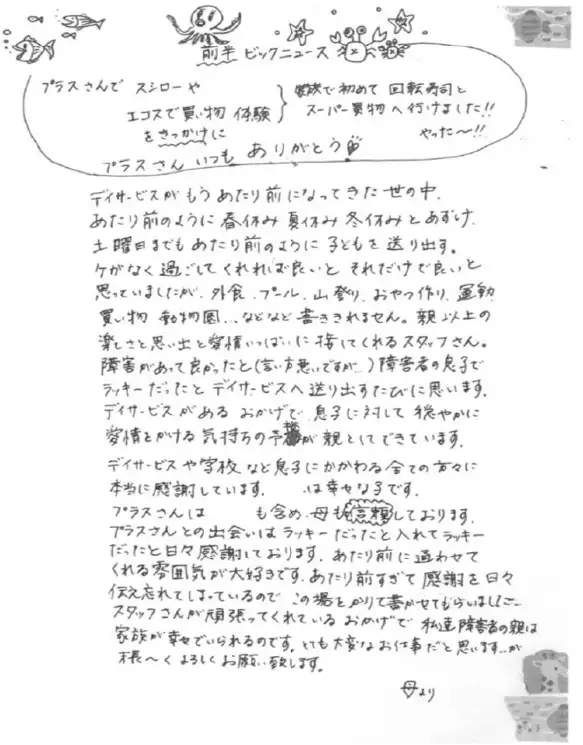 前半 ビックニュース
プラスさんで スシローや
エコスで買い物 体験
をきっかけに
家族で初めて 回転寿司と
スーパー買物へ行けました!!
やった〜!!
プラスさん いつも ありがとう
デイサービスが もう あたり前になってきた 世の中。
あたり前のように 春休み 夏休み 冬休みと あずけ、
土曜日までも あたり前のように 子どもを 送り出す。
ケガなく 過ごしてくれれば良いと それだけで良いと
思っていましたが、外食、プール、山登り、おやつ作り、運動、
買い物 動物園...などなど 書ききれません。親以上の
楽しさと思い出と 愛情いっぱいに 接してくれるスタッフさん。
障害があって良かったと(言い方悪いですが...)障害者の息子で
ラッキーだったと デイサービスへ 送り出すたびに 思います。
デイサービスがある おかげで 息子に対して 穏やかに
愛情をかける 気持ちの 予備が 親としてできています。
デイサービスや学校 など 息子に かかわる 全ての方々に
本当に感謝しています。 は幸せな子です。
プラスさんは も含め 母も信頼しております。
プラスさんとの出会いは ラッキーだったと 入れてラッキー
だったと日々感謝しております。あたり前に 通わせて
くれる 雰囲気が 大好きです。あたり前すぎて 感謝を日々
伝え忘れてしまっているので この場をかりて書かせてもらいました。
スタッフさんが頑張ってくれている おかげで 私達障害者の親は
家族が幸せでいられるのです。とても大変なお仕事だと思います...が
末長〜く よろしくお願い致します。
母より